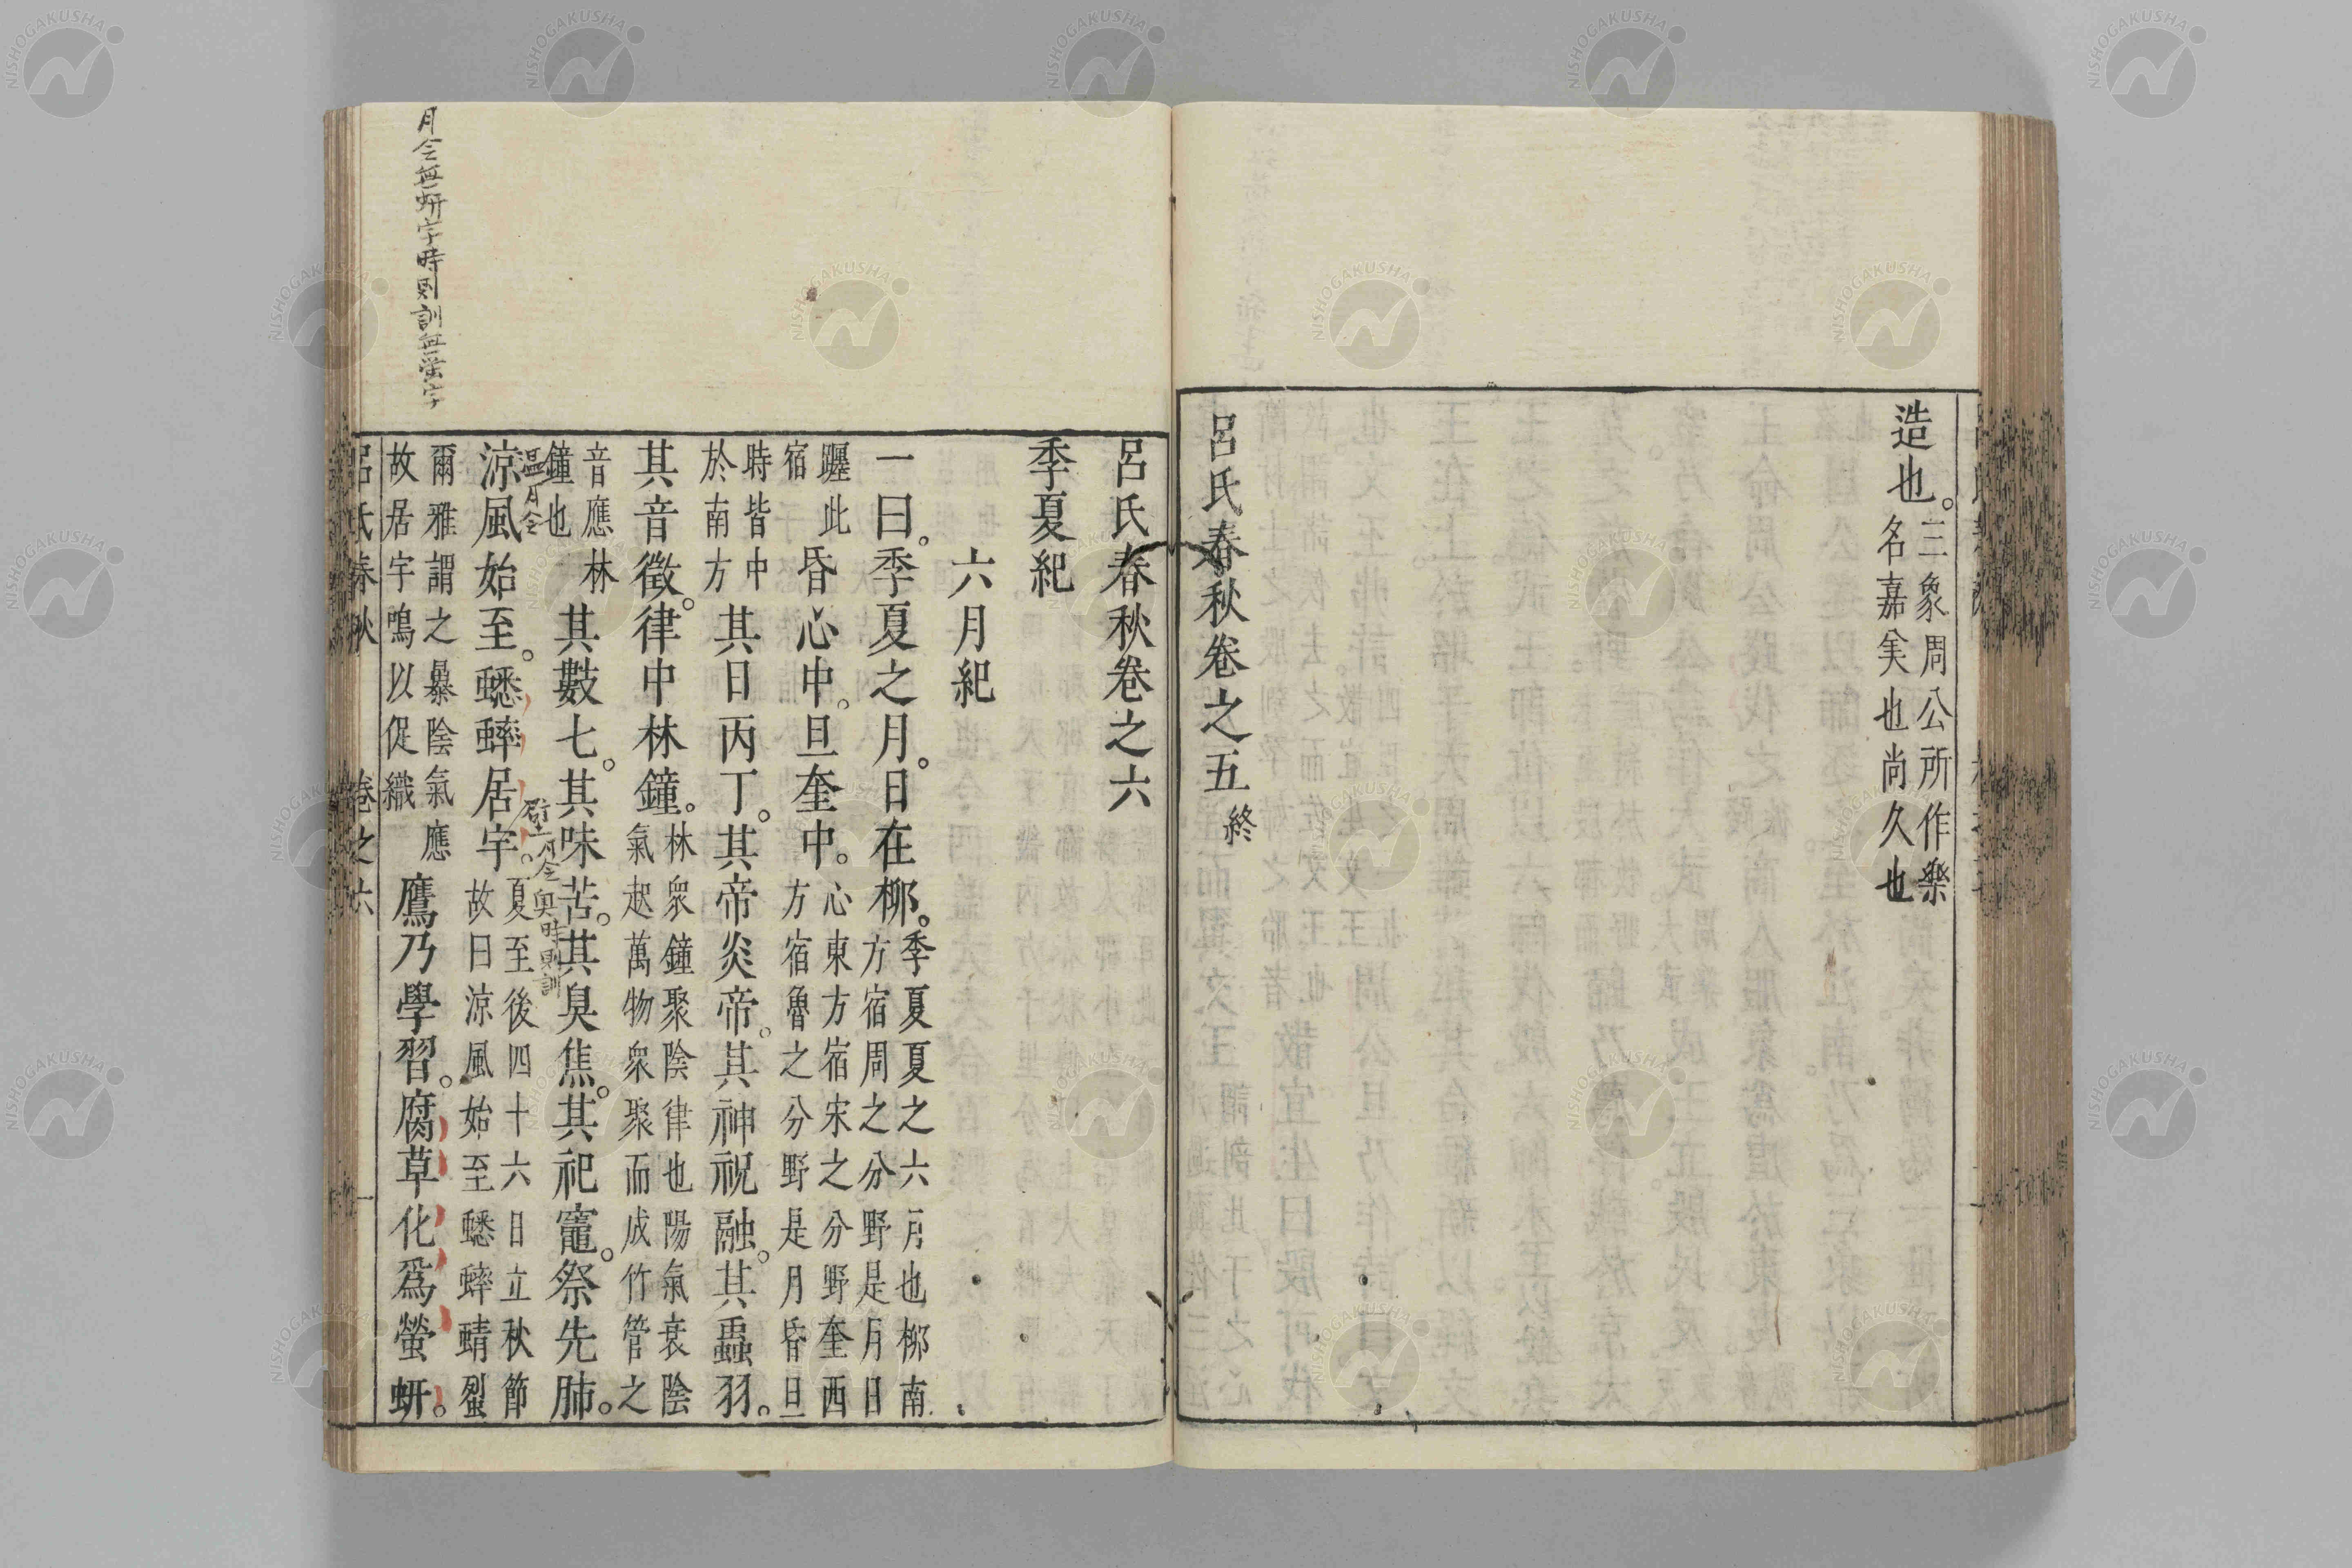 造也。三象周公所作樂
名嘉矣也尚久也
呂氏春秋卷之五終
呂氏春秋卷之六
季夏紀
六月紀
一曰。季夏之月。日在栁。季夏夏之六月也栁南
方宿周之分野是月日
躔此
宿
昏心中。旦奎中。心東方宿宋之分野奎西
方宿魯之分野是月昏旦
時皆中
於南方
其日丙丁。其帝炎帝。其神祝融。其蟲羽。
其音徵。律中林鐘。林衆鐘聚陰律也陽氣衰陰
氣起萬物衆聚而成竹管之
音應林
鐘也
其數七。其味苦。其臭焦。其祀竈。祭先肺。
溫月令
涼風始至。蟋蟀居宇。夏至後四十六日立秋節
故曰涼風始至蟋蟀蜻蛚
壁月令奥時則訓
爾雅謂之暴陰氣應
故居宇鳴以促織
鷹乃學習。腐草化爲螢蚈。
月令無蚈字時則訓無螢字
呂氏春秋 卷之六 一
NISHOGAKUSHA